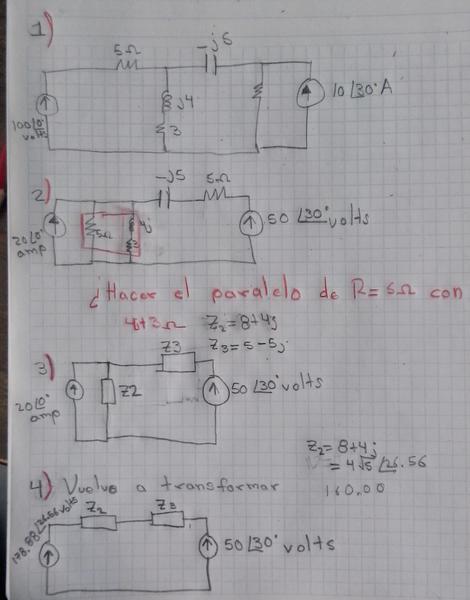 1)
5Ω
-j6
100∠0°
volts
j4
3
10∠30° A
2)
-j5
5Ω
20∠0°
amp
5Ω
4j
50∠30° volts
¿Hacer el paralelo de R=5Ω con
4j+3Ω
Z2=8+4j
Z3=5-5j
3)
Z3
20∠0°
amp
Z2
50∠30° volts
Z2=8+4j
=4√5 ∠26.56
160.00
4) Vuelve a transformar
178.88∠26.56 volts
Z2
Z3
50∠30° volts